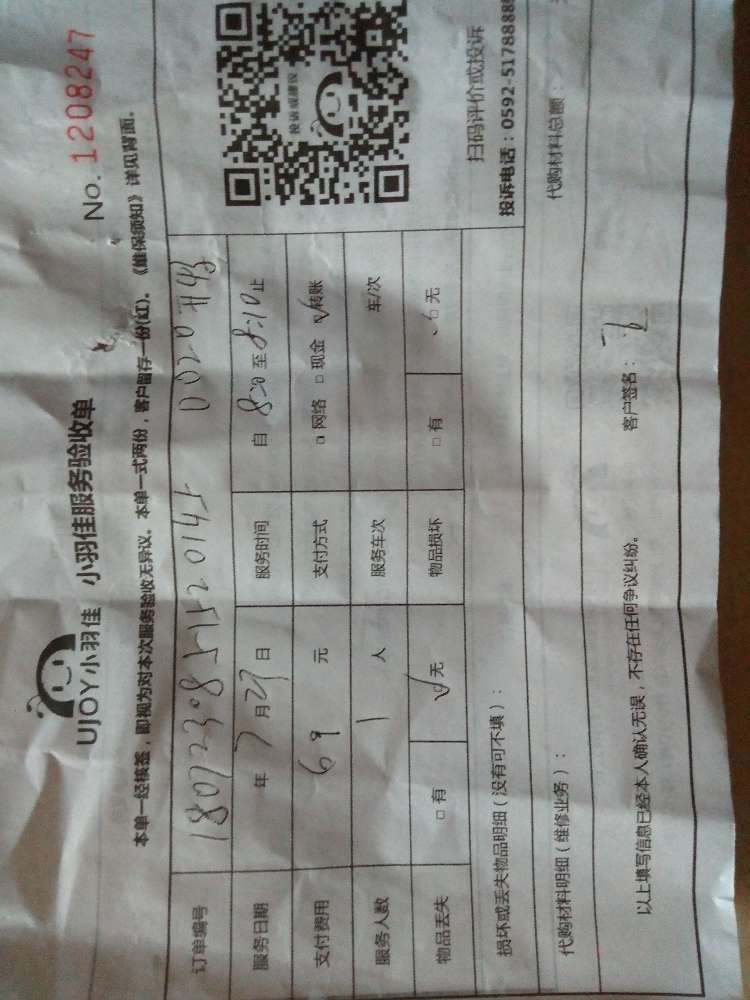 UJOY小羽佳 小羽佳服务验收单 No. 1208247
本单一经核签，即视为对本次服务验收无异议。本单一式两份，客户留存一份(红)。《维保须知》详见背面。
订单编号
服务日期 年 7 月 23 日 服务时间 自 8:00 至 8:10 止
支付费用 69 元 支付方式 □ 网络 □ 现金 ☑ 转账
服务人数 1 人 服务车次 车/次
物品丢失 □ 有 ☑ 无 物品损坏 □ 有 ☑ 无
投诉或建议
扫码评价或投诉
投诉电话：0592-5178888
损坏或丢失物品明细（没有可不填）：
代购材料明细（维修业务）： 代购材料总额：
以上填写信息已经本人确认无误，不存在任何争议纠纷。 客户签名：